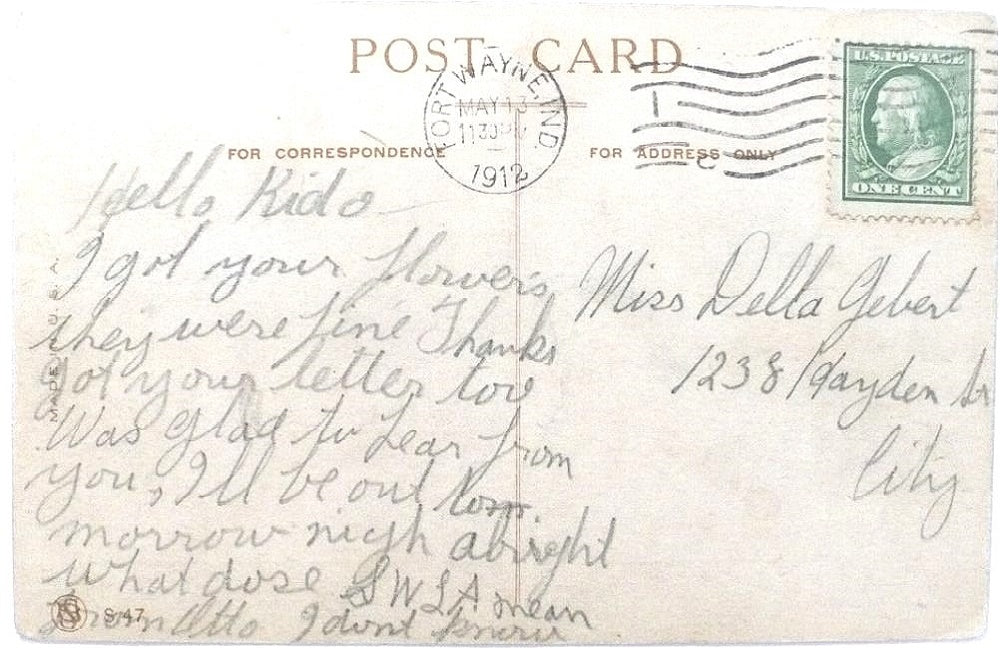 POST CARD
FORT WAYNE, IND
MAY 13
1130
1912
U.S. POSTAGE
ONE CENT
FOR CORRESPONDENCE
FOR ADDRESS ONLY
Hello Kido
I got your flowers
they were fine Thanks
got your letter too
Was glad to hear from
you, I'll be out tom
morrow nigh alright
What dose S W S A mean
from Otto I dont know
Miss Della Gebert
1238 Hayden St
City
MADE IN U. S. A.
S-47